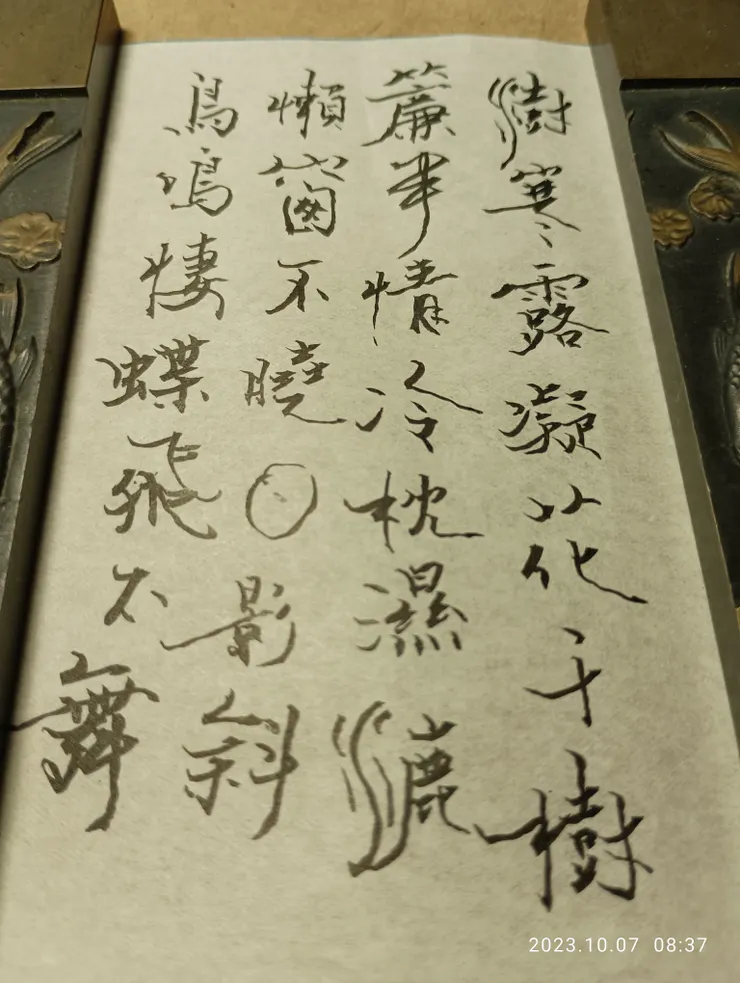 澍寒露凝花千樹
簾半情冷枕濕漉
懶窗不曉〇影斜
鳥鳴悽蝶飛不舞
2023.10.07 08:37